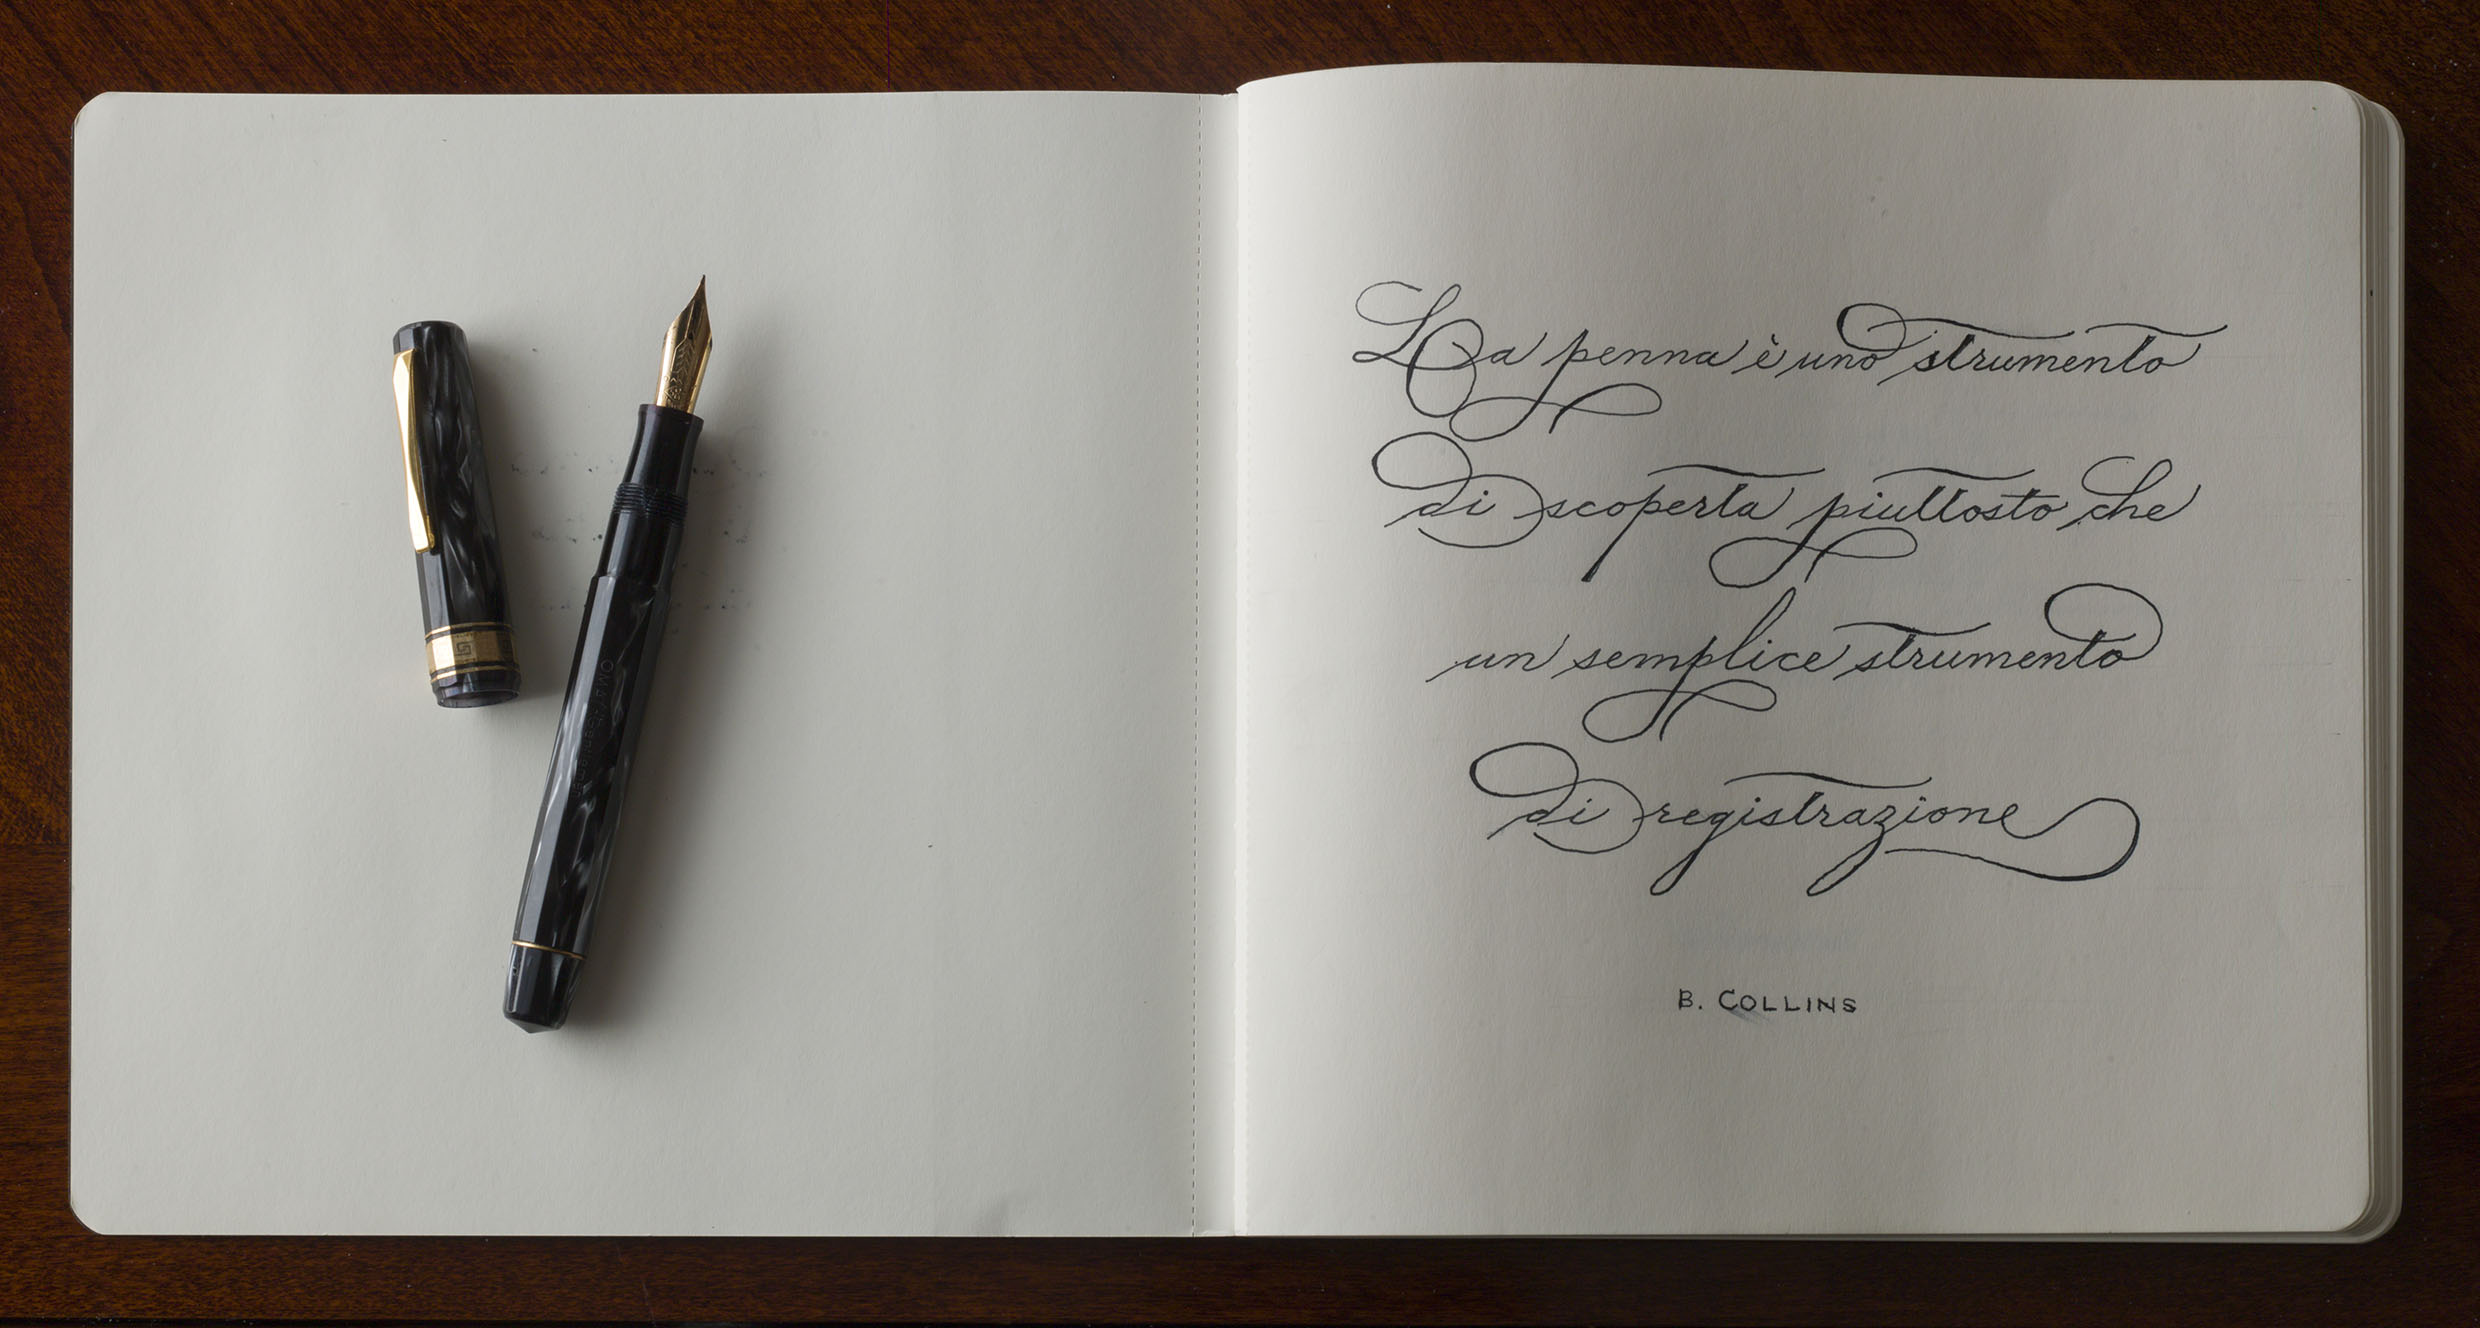 La penna è uno strumento
di scoperta piuttosto che
un semplice strumento
di registrazione
B. COLLINS
OMAS